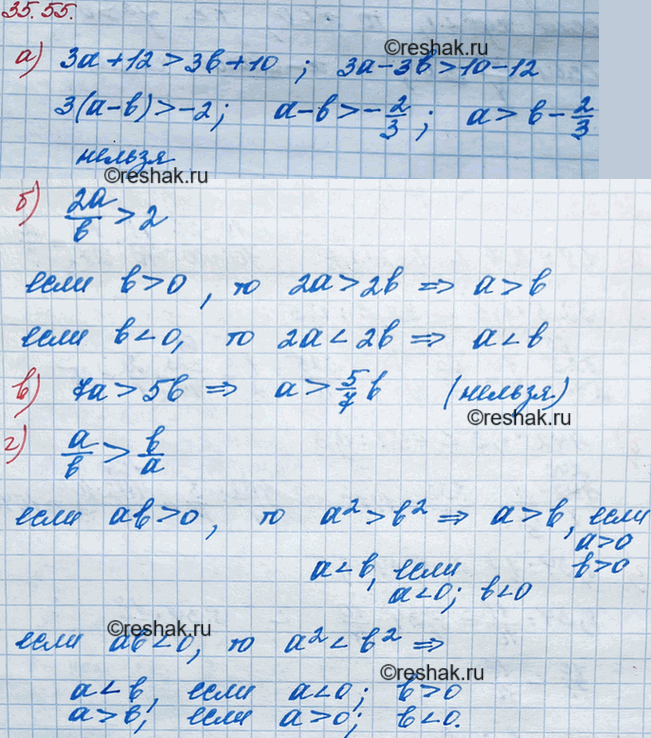 35.55.
©reshak.ru
а) 3a+12>3b+10 ; 3a-3b>10-12
3(a-b)>-2; a-b>-2/3; a>b-2/3
нельзя
©reshak.ru
б) 2a/b>2
если b>0, то 2a>2b ⇒ a>b
если b<0, то 2a<2b ⇒ a<b
в) 7a>5b ⇒ a>5/7b (нельзя)
©reshak.ru
г) a/b>b/a
если ab>0, то a²>b² ⇒ a>b, если
a>0
b>0
a<b, если
a<0; b<0
©reshak.ru
если ab<0, то a²<b² ⇒
©reshak.ru
a<b, если a<0; b>0
a>b, если a>0; b<0.